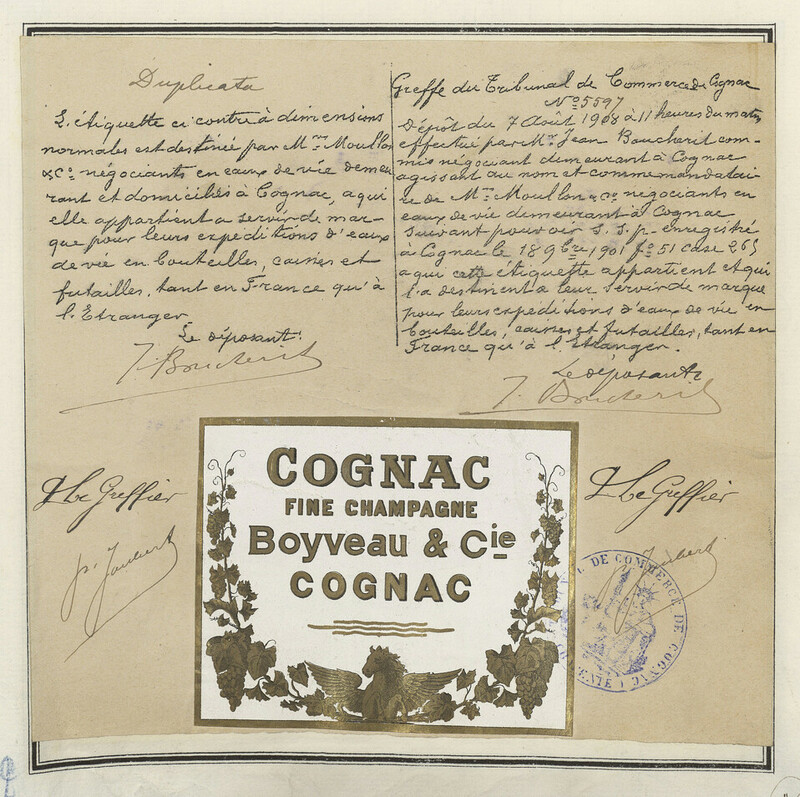 Duplicata
L'étiquette ci contre à dimensions
normales est destinée par Mrs Moullon
& Co négociants en eaux de vie demeu
rant et domiciliés à Cognac, a qui
elle appartient a servir de mar-
que pour leurs expéditions d'eaux
de vie en bouteilles, caisses et
futailles, tant en France qu'à
l'Etranger
Le déposant:
J. Boucherit
Greffe du Tribunal de Commerce de Cognac
No 5597
Dépôt du 7 Août 1908 à 11 heures du matin
effectué par Mr Jean Boucherit com-
mis négociant demeurant à Cognac
agissant au nom et comme mandatai
re de Mrs Moullon & Co négociants en
eaux de vie demeurant à Cognac
suivant pouvoir s. s. p. enregistré
à Cognac le 18 9bre 1901 fo 51 case 265
a qui cette étiquette appartient et qui
l'a destinent a leur servir de marque
pour leurs expéditions d'eaux de vie en
bouteilles, caisses et futailles, tant en
France qu'à l'Etranger.
Le déposant
J. Boucherit
Le Greffier
p. Joubert
COGNAC
FINE CHAMPAGNE
Boyveau & Cie
COGNAC
Le Greffier
Joubert
DE COMMERCE DE COGNAC